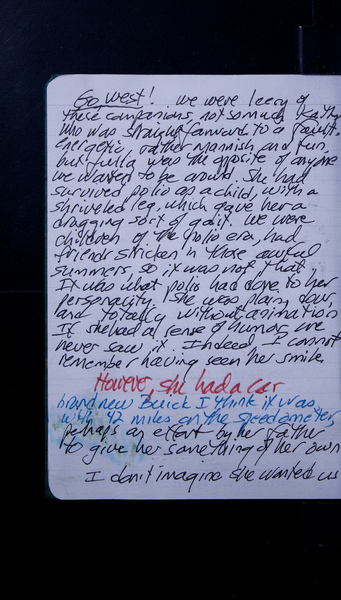 Go West! We were leery of
these companions, not so much Kathy
who was straightforward to a fault,
energetic, rather mannish and fun,
but Julla was the opposite of anyone
we wanted to be around. She had
survived polio as a child, with a
shriveled leg, which gave her a
dragging sort of gait. We were
children of the polio era, had
friends stricken in those awful
summers, so it was not that.
It was what polio had done to her
personality. She was plain, dour,
and totally without animation
If she had a sense of humor, we
never saw it. Indeed, I cannot
remember having seen her smile
However, she had a car
brand new Buick I think it was,
with 42 miles on the speedometer,
perhaps an effort by her father
to give her something of her own
I don't imagine she wanted us